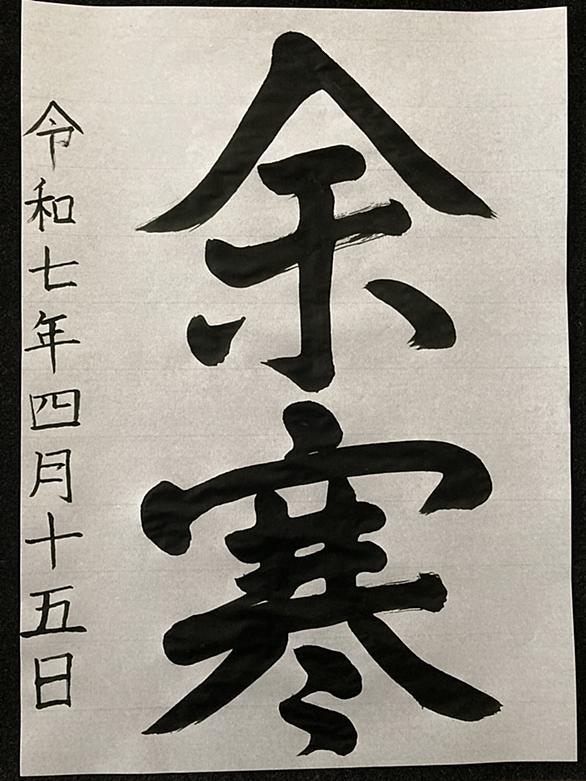 余寒
令和七年四月十五日